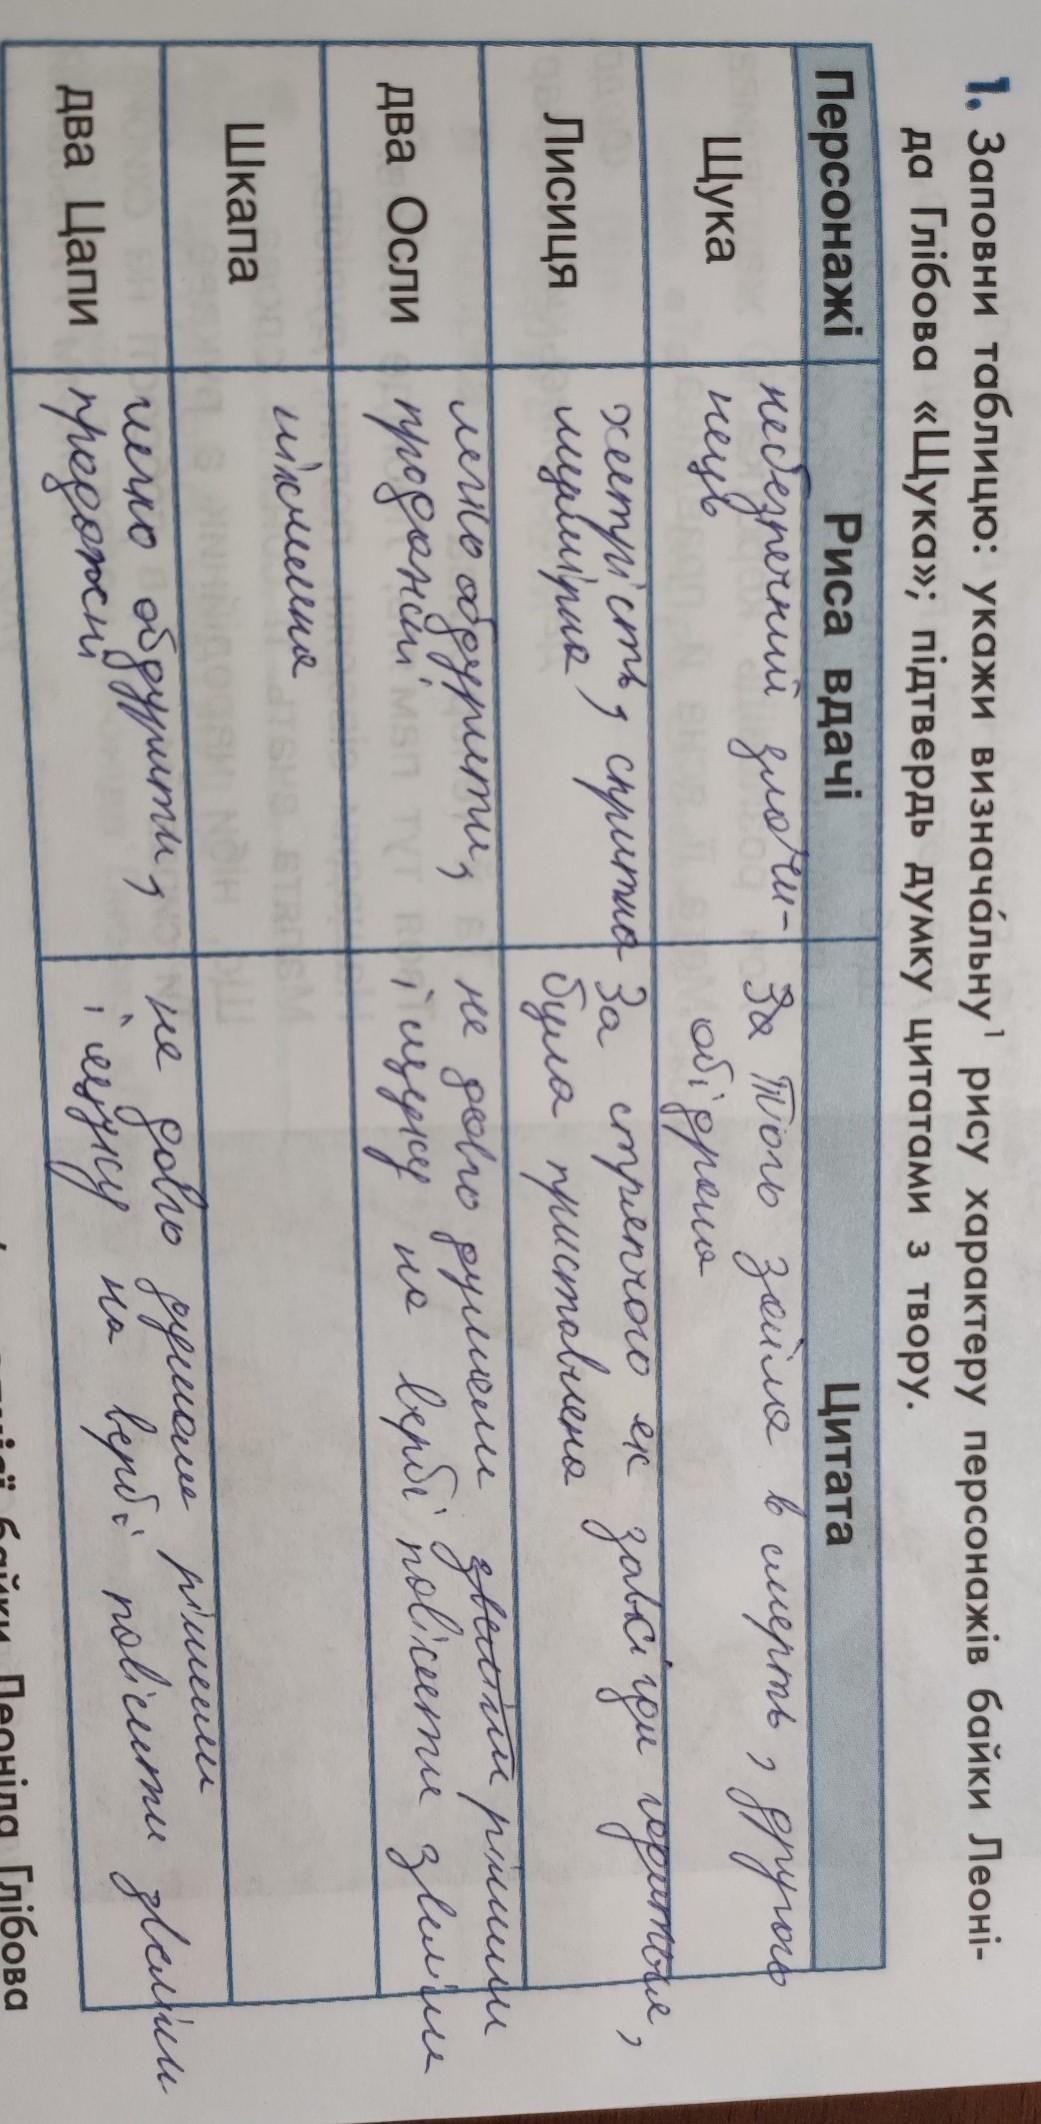 1. Заповни таблицю: укажи визнача́льну¹ рису характеру персонажів байки Леоні-
да Глібова «Щука»; підтвердь думку цитатами з твору.
Персонажі Риса вдачі Цитата
Щука небезпечний злочи-
нець
За того заїла в смерть, другого
обідрала
Лисиця хитрість, спритна
лицемірна
За стряпчого як завсігди годиться,
була приставлена
два Осли легко обдурити,
продажні
не довго думали звеліли рішили
і щуку на вербі повісити звеліли
Шкапа нікчемна
два Цапи легко обдурити,
продажні
не довго думали рішили
і щуку на вербі повісити звеліли
байки Леоніда Глібова